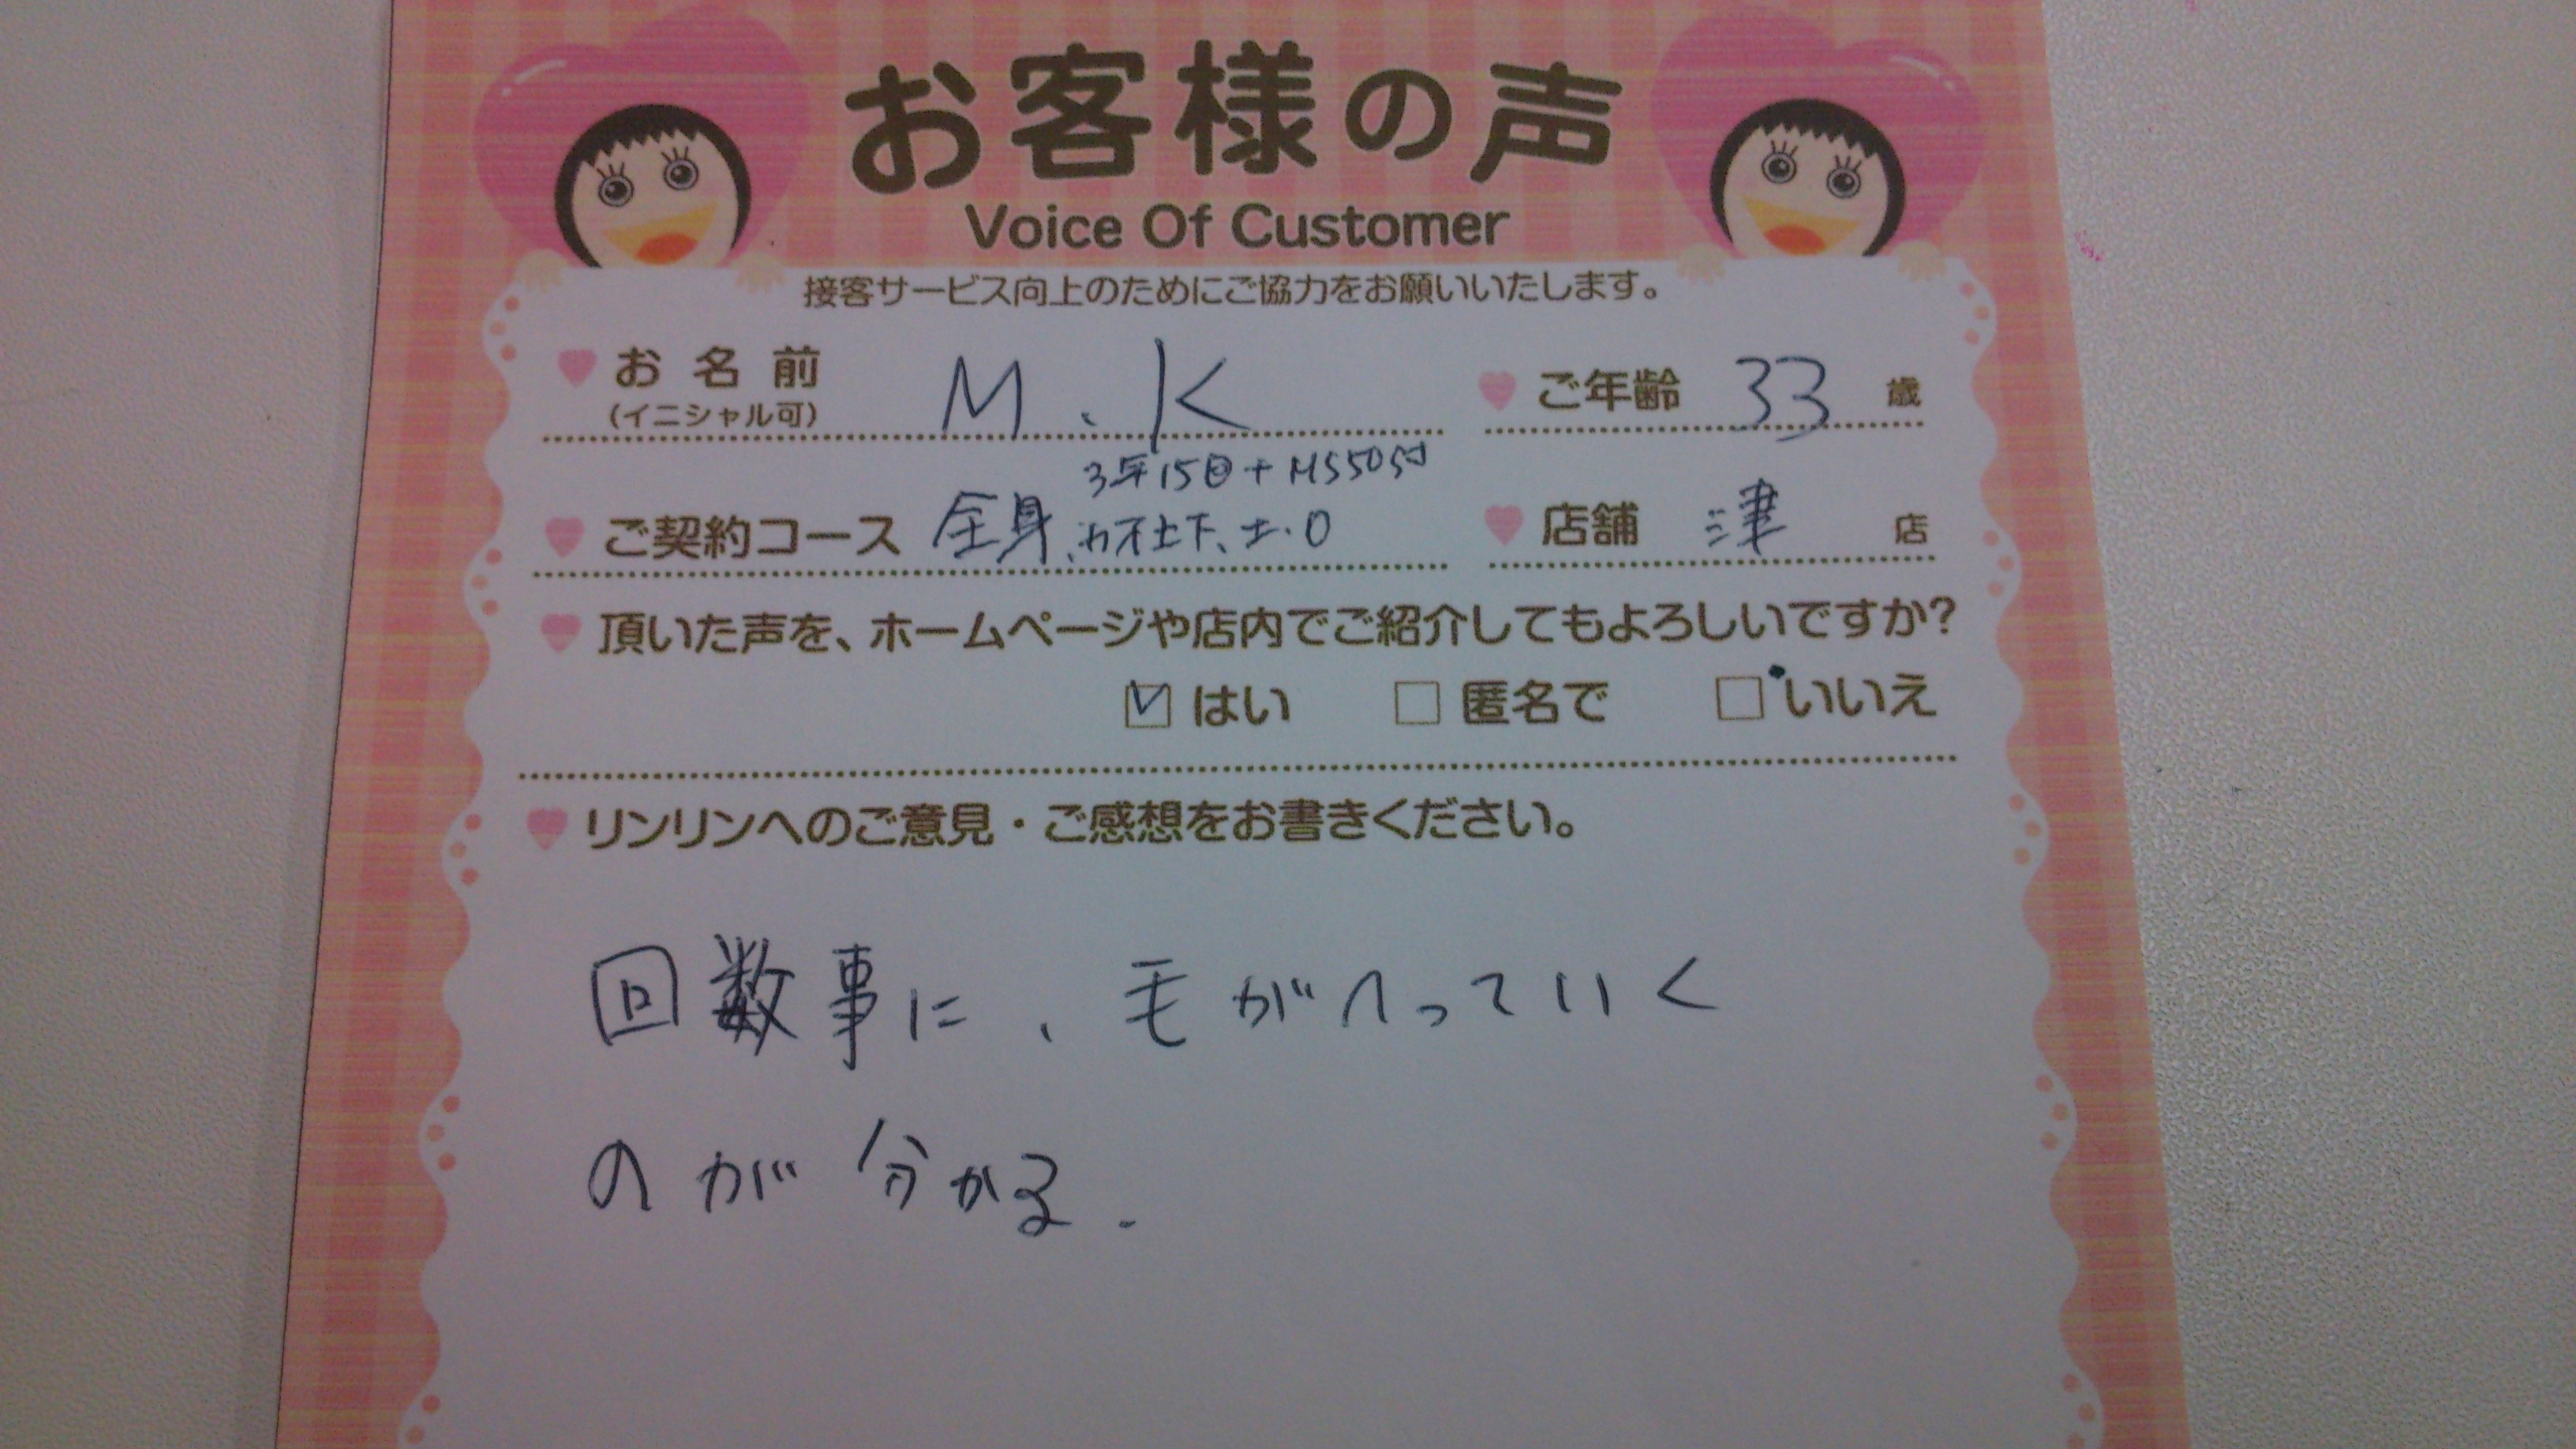 お客様の声
Voice Of Customer
接客サービス向上のためにご協力をお願いいたします。
お名前 M.K ご年齢 33 歳
(イニシャル可)
3年15回+MS50分
ご契約コース 全身、 店舗 津 店
頂いた声を、ホームページや店内でご紹介してもよろしいですか?
はい 匿名で いいえ
リンリンへのご意見・ご感想をお書きください。
回数事に、毛がへっていく
のが分かる.